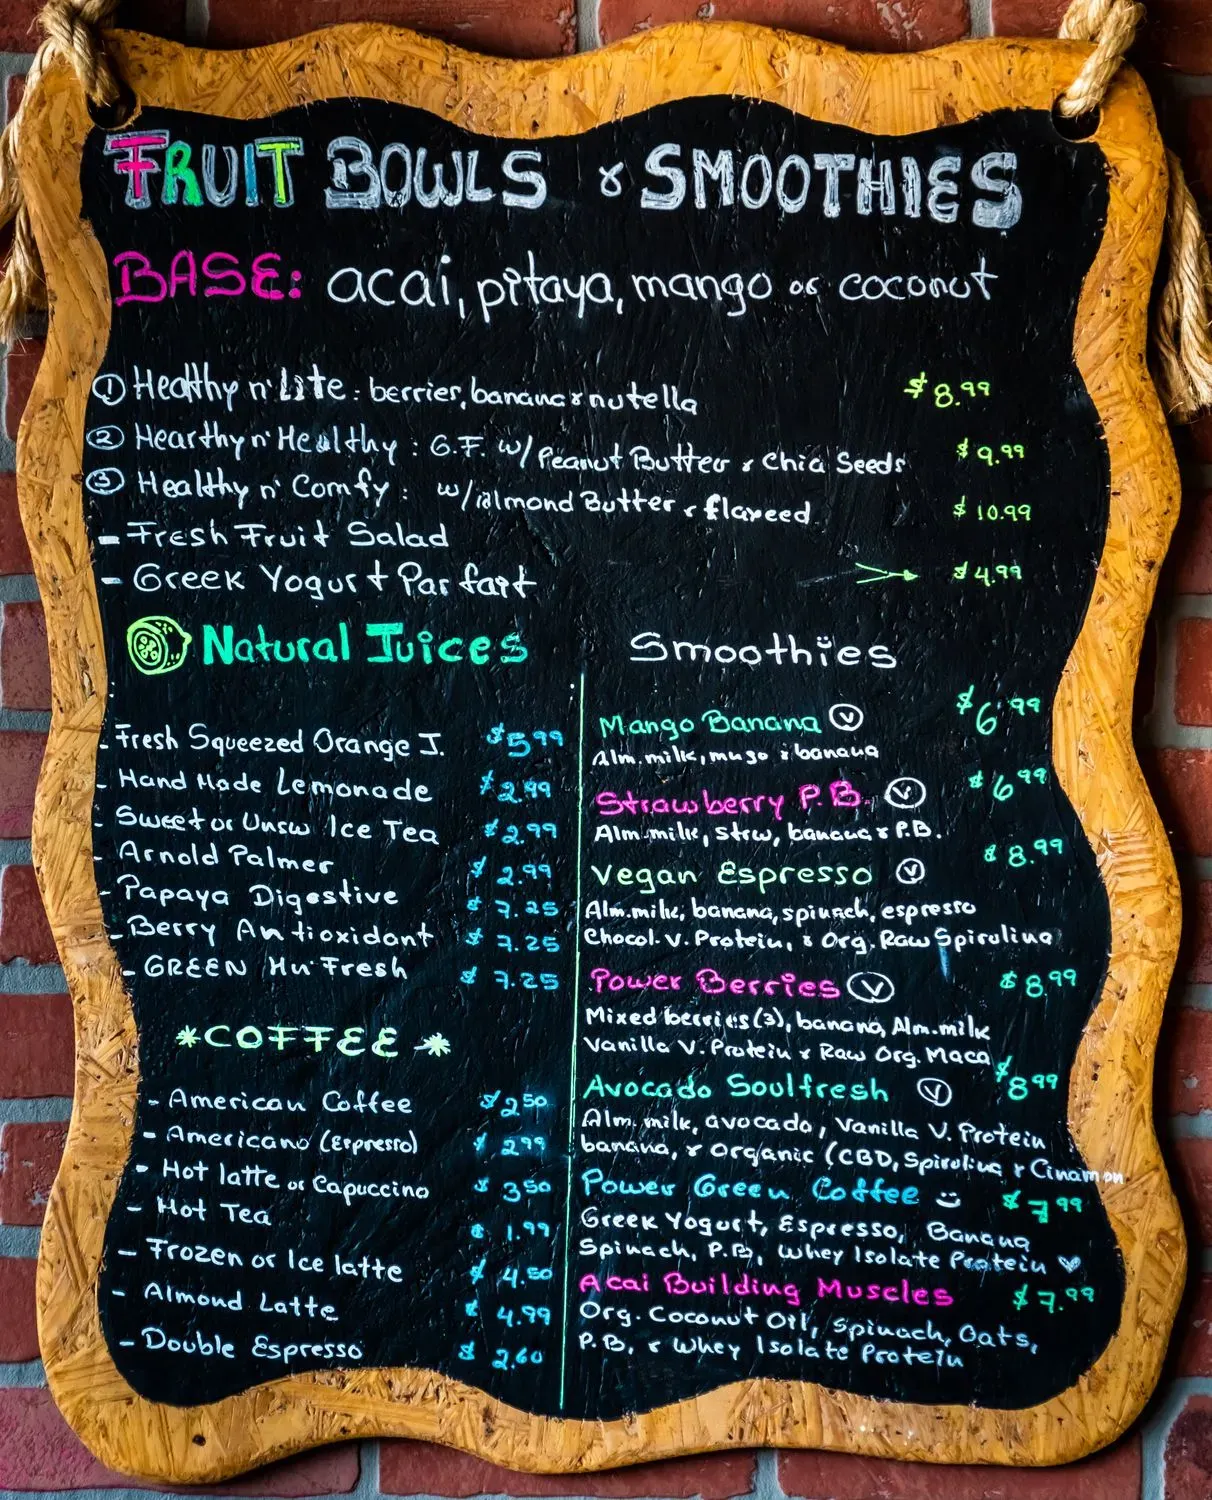 FRUIT BOWLS & SMOOTHIES
BASE: acai, pitaya, mango or coconut
① Healthy n' Lite: berries, banana & nutella $8.99
② Hearthy n' Healthy: G.F. w/ Peanut Butter & Chia Seeds $9.99
③ Healthy n' Comfy: w/almond Butter & flaxeed $10.99
- Fresh Fruit Salad
- Greek Yogurt Parfait $4.99
Natural Juices
- Fresh Squeezed Orange J. $5.99
- Hand Made Lemonade $2.99
- Sweet or Unsw Ice Tea $2.99
- Arnold Palmer $2.99
- Papaya Digestive $7.25
- Berry Antioxidant $7.25
- GREEN Hu' Fresh $7.25
*COFFEE*
- American Coffee $2.50
- Americano (Espresso) $2.99
- Hot latte or Capuccino $3.50
- Hot Tea $1.99
- Frozen or Ice latte $4.50
- Almond Latte $4.99
- Double Espresso $2.60
Smoothies
Mango Banana Ⓥ $6.99
Alm.milk, mngo & banana
Strawberry P.B. Ⓥ $6.99
Alm.milk, strw, banana & P.B.
Vegan Espresso Ⓥ $8.99
Alm.milk, banana, spinach, espresso
Chocol. V. Protein, & Org. Raw Spirulina
Power Berries Ⓥ $8.99
Mixed berries (3), banana, Alm.milk
Vanilla V. Protein & Raw Org. Maca
Avocado Soulfresh Ⓥ $8.99
Alm. milk, avocado, Vanilla V. Protein
banana, & Organic (CBD, Spirulina & Cinamon
Power Green Coffee $7.99
Greek Yogurt, Espresso, Banana
Spinach, P.B, Whey Isolate Protein
Acai Building Muscles $7.99
Org. Coconut Oil, Spinach, Oats,
P.B, & Whey Isolate Protein